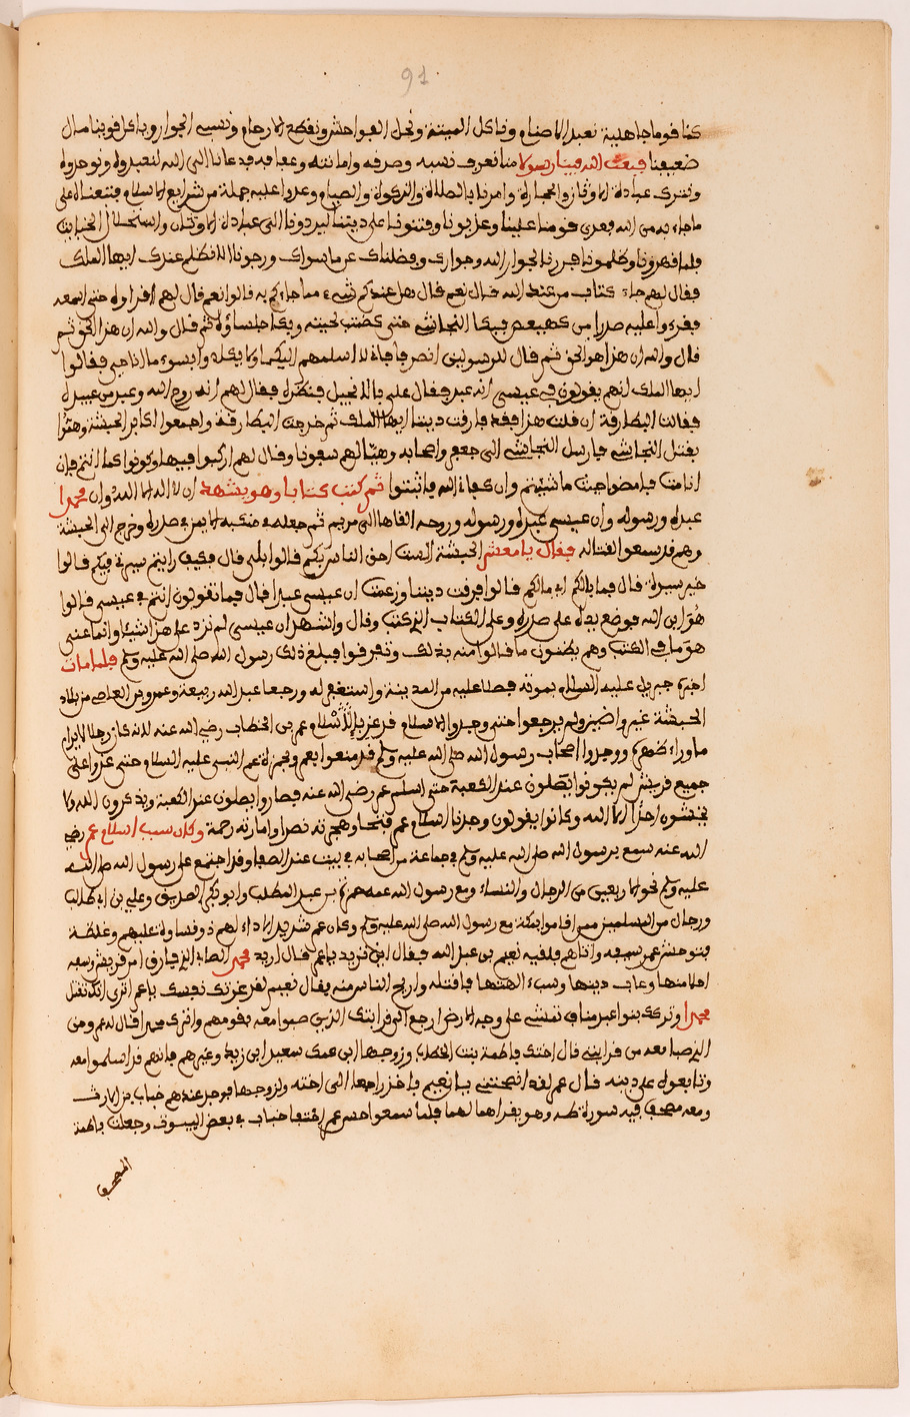 91
كنا قوما جاهلية نعبد الاصنام وناكل الميتة ونحل الفواحش ونقطع الارحام ونسيء الجوار وياكل قوينا مال
ضعيفنا فبعث الله فينا رسولا منا نعرف نسبه وصدقه وامانته وعفافه فدعانا الى الله لنعبده ونوحده
ونترك عبادة الاوثان والحجارة وامرنا بالصلاة والزكوة والصيام وعددوا عليه جملة من شرايع الاسلام فتبعناه على
ماجاء به من الله فعدى قومنا علينا وعذبونا وفتنونا على ديننا ليردونا الى عبادة الاوثان واستحلال الخبايث
فلما قهرونا وظلمونا خرجنا لجوار الله وجوارك وفضلناك عن ماسواك ورجونا الا نظلم عندك ايها الملك
فقال لهم جاء كتاب من عند الله قال نعم قال هل عندكم شيء مما جاءكم به قالوا نعم قال لهم اقراوه حتى اسمعه
فقرءوا عليه صدرا من كهيعص فبكا النجاشي حتى خضب لحيته وبكا جلساؤه ثم قال والله ان هذا الحق ثم
قال والله ان هذا هو الحق ثم قال للرسولين انصرفا فلا اسلمهم اليكما
ايها الملك انهم يقولون في عيسى انه عبد فقال علي بالانجيل فنظره فقال لهم انه روح الله وعبد من عبيده
فقالت البطارقة ان قلت هذا فقد فارقت ديننا ايها الملك ثم خرجت البطارقة واجمعوا اكابر الحبشة وهموا
بقتل النجاشي فارسل النجاشي الى جعفر واصحابه وهيا لهم سفونا وقال لهم اركبوا فيها وكونوا كما انتم فان
انامت فامضوا حيث ماشيتم وان كفاه الله فاثبتوا ثم كتب كتابا وهو يشهد ان لا اله الا الله وان محمدا
عبده ورسوله وان عيسى عبده ورسوله وروحه القاها الى مريم ثم جعله في منكبه الايمن في صدره وخرج الى الحبشة
وهم قد سمعوا لقتاله فقال يا معشر الحبشة الست احق الناس بكم قالوا بلى قال فكيف رايتم سيرتي فيكم قالوا
خير سيرة قال فما بالكم قالوا فرقت ديننا وزعمت ان عيسى عبدا قال فما تقولون انتم في عيسى قالوا
هو ابن الله فوضع يده على صدره وعلى الكتاب الذي كتب وقال واشهد ان عيسى لم نزد على هذا شيئا وانما عنى
هو ما في الكتب وهم يظنون ما قالوا منه بذلك وتفرقوا فبلغ ذلك رسول الله صلى الله عليه وسلم فلما مات
اخبره جبريل عليه السلام بموته فصلا عليه من المدينة واستغفر له ورجعا عبد الله ربيعة وعمرو بن العاص من بلاد
الحبشة حتى وجدوا الاسلام قد عز باسلام عمر بن الخطاب رضي الله عنه لانه كان رجلا لا يرام
ما وراء ظهره ووجدوا اصحاب رسول الله صلى الله عليه وسلم قد منعوا بعمر وبحمزة عم النبي عليه السلام حتى عزوا على
جميع قريش لم يكونوا يصلون عند الكعبة حتى اسلم عمر رضي الله عنه فصاروا يصلون عند الكعبة ويذكرون الله ولا
يخشون احدا الا الله وكانوا يقولون وجدنا اسلام عمر فتحا وهجرته نصرا وامارته رحمة وكان سبب اسلام عمر رضي
الله عنه سمع برسول الله صلى الله عليه وسلم في جماعة من اصحابه في بيت عند الصفا وقد اجتمع على رسول الله صلى الله
عليه وسلم نحو اربعين من الرجال والنساء ومع رسول الله عمه حمزة بن عبد المطلب وابو بكر الصديق وعلي بن ابي طالب
ورجال من المسلمين ممن اقاموا بمكة مع رسول الله صلى الله عليه وسلم وكان عمر شديد الاداء لهم ذو قساوة عليهم وغلظة
فتوحش عمر بسيفه واتاهم فلقيه نعيم بن عبد الله فقال اين تريد يا عمر قال اريد محمد الصابي الذي فارق امر قريش وسفه
احلامنها وعاب دينها وسب الهتها فاقتله واريح الناس منه فقال نعيم لقد غرتك نفسك يا عمر اترى انك تقتل
محمدا وتركك بنوا عبد مناف تمشي على وجه الارض ارجع الى قرابتك الذين صبوا معه
الذي صبا معه من قرابتي قال اختك فاطمة بنت الخطاب وزوجها ابن عمك سعيد بن زيد وغيرهم فانهم قد اسلموا معه
وتابعوه على دينه قال عمر لقد نصحتني يا نعيم فاخذ راجعا الى اخته ولزوجها فوجد عندهم خباب بن الارت
ومعه مصحف فيه سورة طه وهو يقراها لهما فلما سمعوا حس عمر اختفا خباب في بعض البيوت وجعلت فاطمة
المصحف